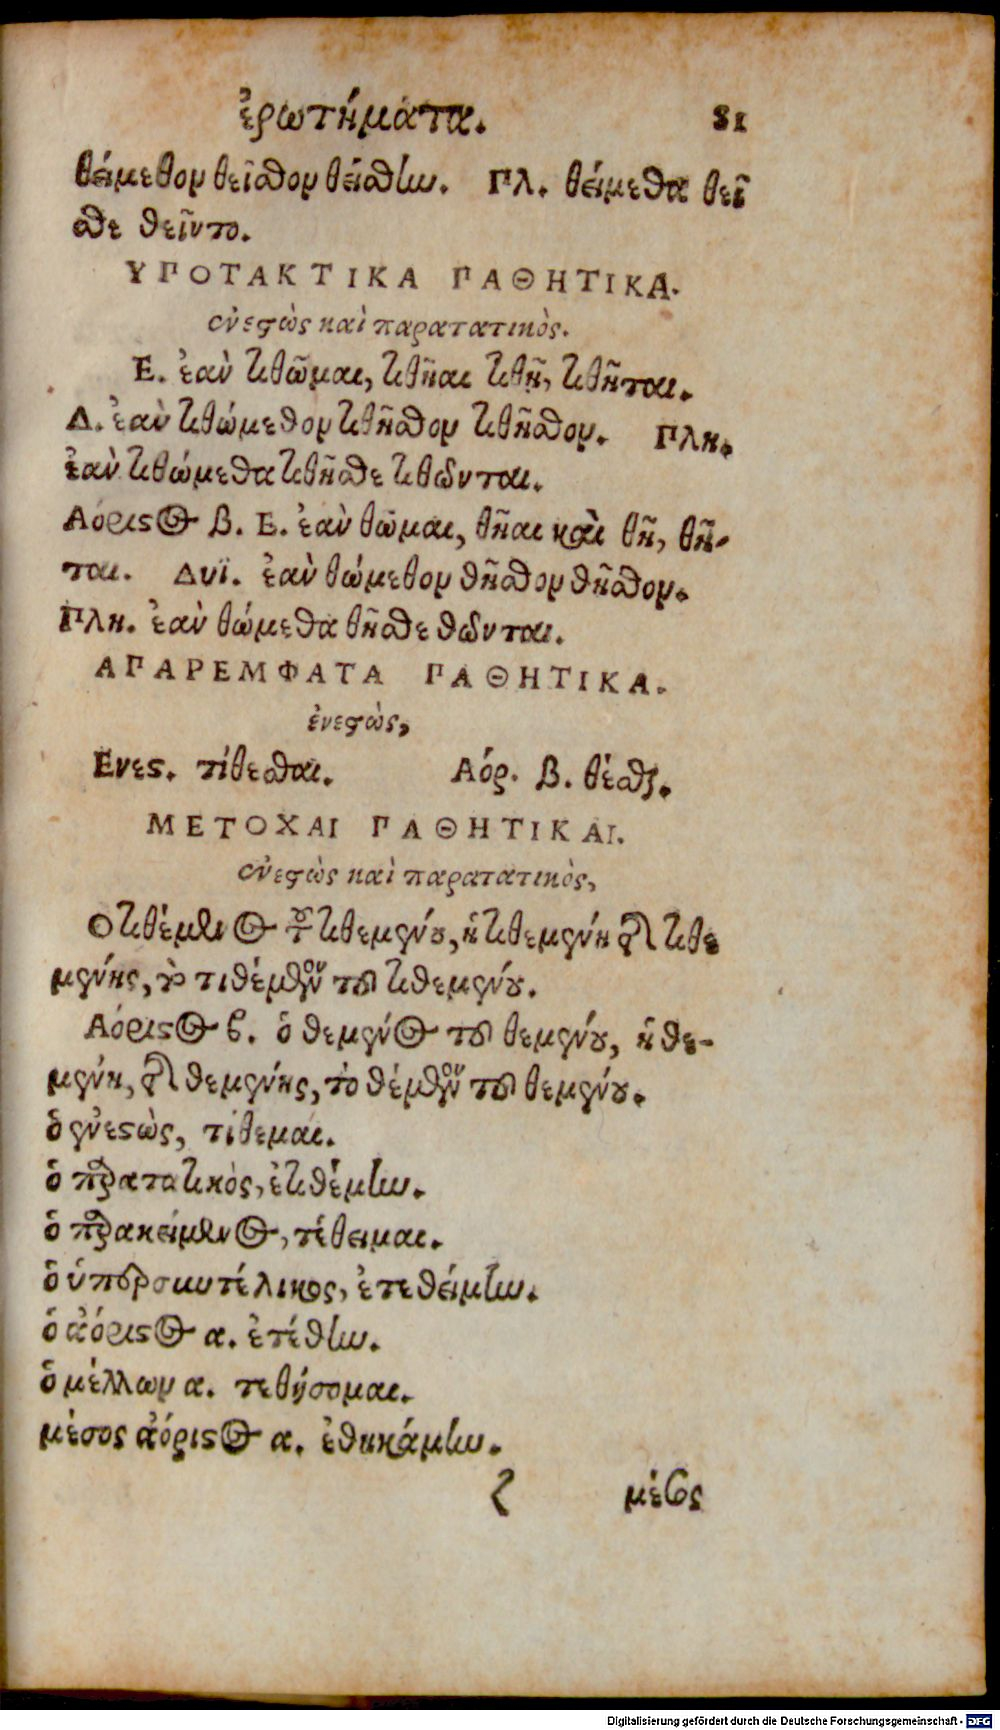 ἐρωτήματα. 81
θείμεθον θεῖσθον θείσθην. Πλ. θείμεθα θεῖ
σθε θεῖντο.
ΥΠΟΤΑΚΤΙΚΑ ΠΑΘΗΤΙΚΑ.
ἐνεστὼς καὶ παρατατικὸς.
Ε. ἐὰν τιθῶμαι, τιθῆαι τιθῇ, τιθῆται.
Δ. ἐὰν τιθώμεθον τιθῆσθον τιθῆσθον. Πλη.
ἐὰν τιθώμεθα τιθῆσθε τιθῶνται.
Αόριστος β. Ε. ἐὰν θῶμαι, θῆαι καὶ θῇ, θῆ-
ται. Δυϊ. ἐὰν θώμεθον θῆσθον θῆσθον.
Πλη. ἐὰν θώμεθα θῆσθε θῶνται.
ΑΠΑΡΕΜΦΑΤΑ ΠΑΘΗΤΙΚΑ.
ἐνεστὼς,
Ενες. τίθεσθαι. Αόρ. β. θέσθαι.
ΜΕΤΟΧΑΙ ΠΑΘΗΤΙΚΑΙ.
ἐνεστὼς καὶ παρατατικὸς,
Ο τιθέμενος τοῦ τιθεμένου, ἡ τιθεμένη τῆς τιθε
μένης, τὸ τιθέμενον τοῦ τιθεμένου.
Αόριστος β. ὁ θεμένος τοῦ θεμένου, ἡ θε-
μένη, τῆς θεμένης, τὸ θέμενον τοῦ θεμένου.
ὁ ἐνεστὼς, τίθεμαι.
ὁ παρατατικὸς, ἐτιθέμην.
ὁ παρακείμενος, τέθειμαι.
ὁ ὑπερσυντέλικος, ἐτεθείμην.
ὁ ἀόριστος α. ἐτέθην.
ὁ μέλλων α. τεθήσομαι.
μέσος ἀόριστος α. ἐθηκάμην.
ζ μέσος
Digitalisierung gefördert durch die Deutsche Forschungsgemeinschaft - DFG